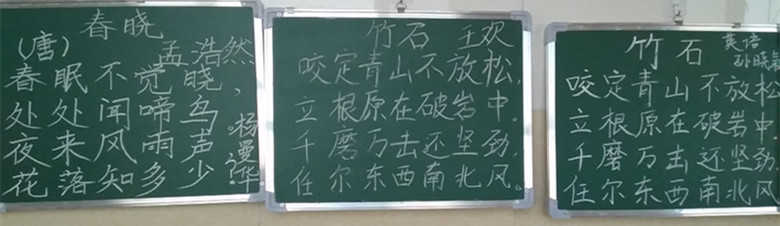 春晓
(唐) 孟浩然
春眠不觉晓，
处处闻啼鸟。
夜来风雨声
花落知多少
杨曼华
竹石 王欢
咬定青山不放松，
立根原在破岩中。
千磨万击还坚劲，
任尔东西南北风。
竹石
英语
孙晓
咬定青山不放松
立根原在破岩中
千磨万击还坚劲
任尔东西南北风